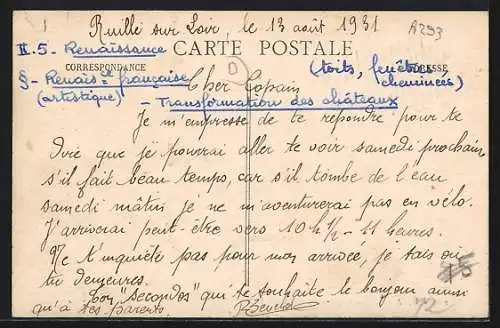 Ruillé sur Loir, le 13 août 1931
A293
II. 5. Renaissance
CARTE POSTALE
CORRESPONDANCE
ADRESSE
§- Renaisce française
(artistique)
(toits, fenêtres
cheminées)
Cher Copain
- Transformation des châteaux
Je m'empresse de te répondre pour te
dire que je pourrai aller te voir samedi prochain
s'il fait beau temps, car s'il tombe de l'eau
samedi matin je ne m'aventurerai pas en vélo.
J'arriverai peut-être vers 10h ½ - 11 heures.
Ne t'inquiète pas pour mon arrivée, je sais où
tu demeures.
Ton "Secondos" qui te souhaite le bonjour ainsi
qu'à tes parents.